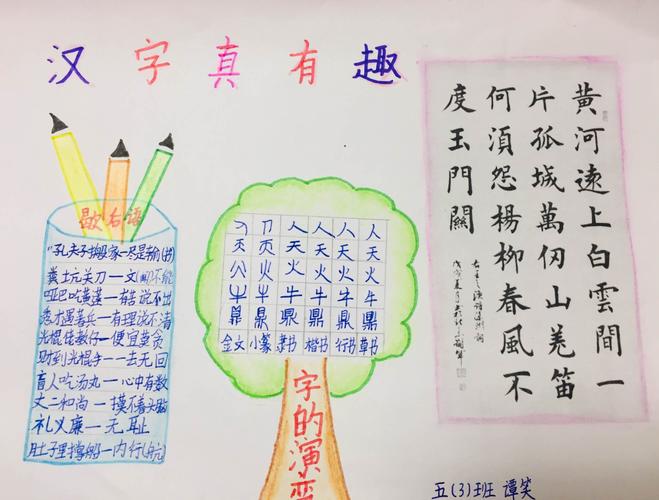 汉字真有趣
歇后语
"孔夫子搬家一尽是输(书)
粪土坑关刀一文(闻)不能
哑巴吃黄连一有苦说不出
秀才遇着兵一有理说不清
光棍佬教仔一便宜莫贪
财到光棍手一一去无回
盲人吃汤丸一心中有数
丈二和尚一摸不着头脑
礼义廉一无耻
肚子里撑船一内行(航)
人 人 人 人
天 天 天 天
火 火 火 火
牛 牛 牛 牛
鼎 鼎 鼎 鼎
金文 小篆 隶书 楷书 行书 草书
字的演变
黄河遠上白雲間一
片孤城萬仞山羌笛
何須怨楊柳春風不
度玉門關
五(3)班 谭笑